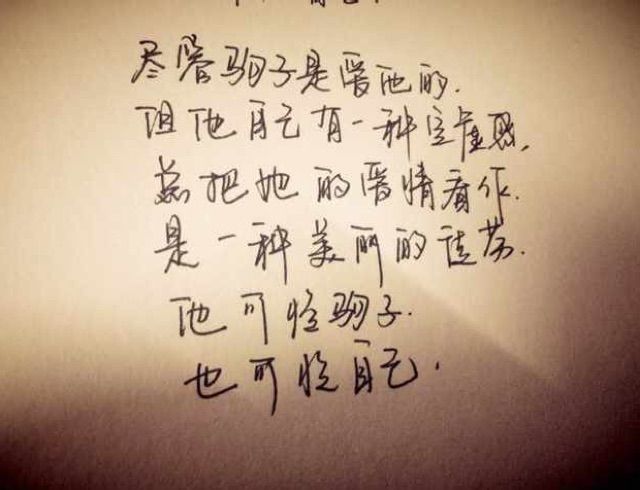 尽管驹子是爱他的.
但他自己有一种空虚感,
总把她的爱情看作.
是一种美丽的徒劳.
他可怜驹子.
也可怜自己.